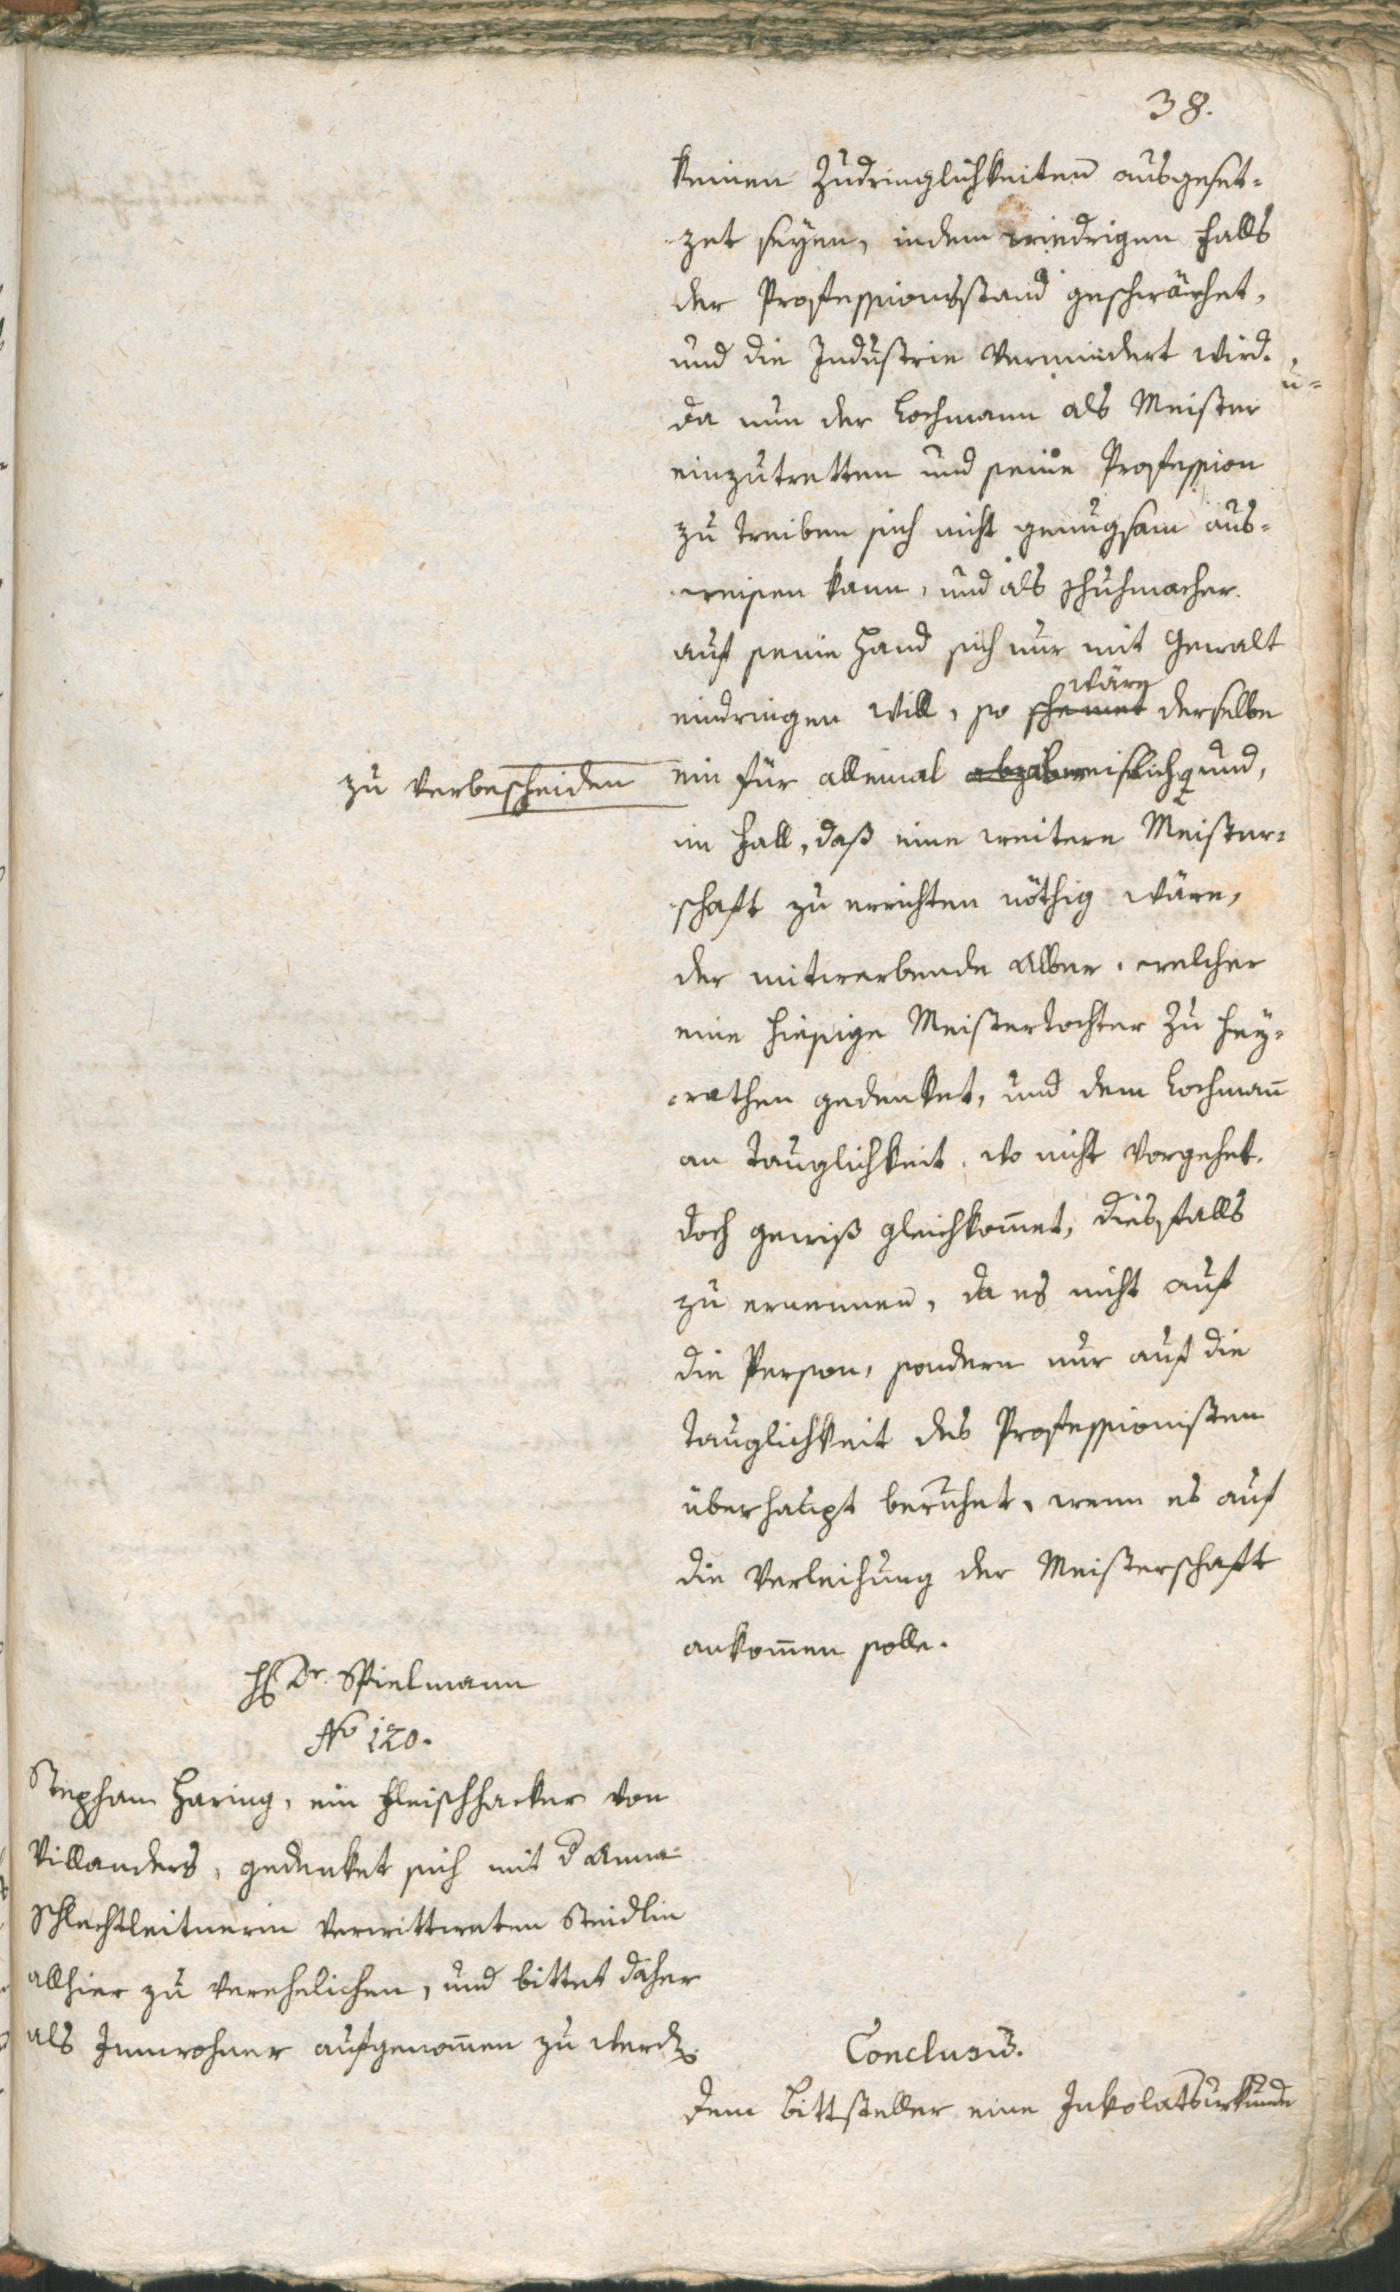 38.
keinen Zudringlichkeiten ausgeset-
zet seyen, indem wiedrigen Falls
der Professionsstand geschwächet,
und die Industrie vermindert wird.
Da nun der Lochmann als Meister
einzutretten und seine Profession
zu treiben sich nicht genugsam aus-
weisen kann, und als Schuhmacher
auf seine Hand sich nur mit Gewalt
wäre
eindringen will, so scheinet derselbe
ein für allemal abzuweislich und,
zu verbescheiden
im Fall, daß eine weitere Meister-
schaft zu errichten nöthig wäre,
der mitwerbende Alber, welcher
eine hiesige Meisterstochter zu hey-
rathen gedenket, und dem Lochmann̄
an Tauglichkeit, wo nicht vorgehet,
doch gewiß gleichkom̄et, diesfalls
zu ernennen, da es nicht auf
die Person, sondern nur auf die
Tauglichkeit des Professionisten
überhaupt beruhet, wenn es auf
die Verleihung der Meisterschaft
ankom̄en solle.
H Dr. Spielmann
No 120.
Stephan Haring, ein Fleischhacker von
Villanders, gedenket sich mit d Anna
Schlechtleitnerin verwittweten Steidlin
allhier zu verehelichen, und bittet daher
als Innwohner aufgenom̄en zu werdẽ.
Conclusũ.
Dem Bittsteller eine Inkolatsurkunde